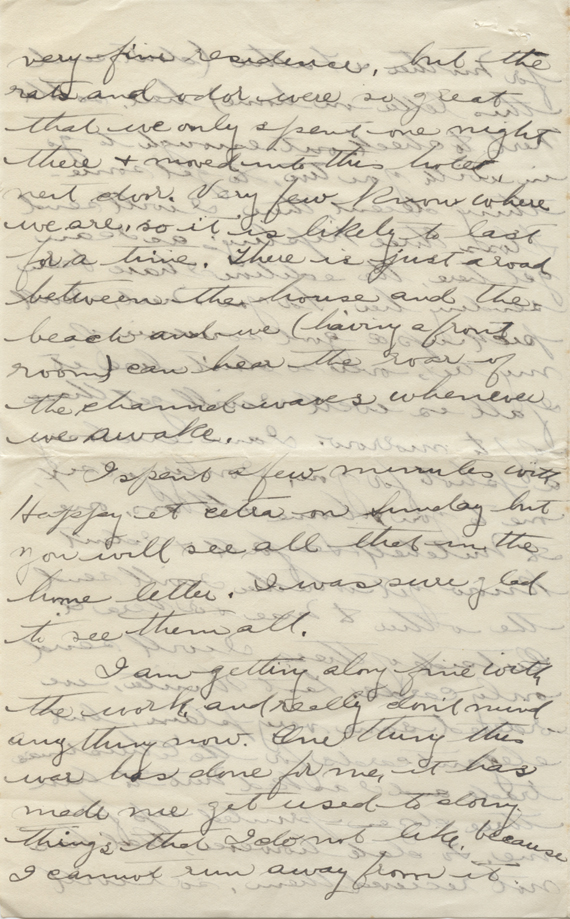 very fine residence, but the
rats and odor were so great
that we only spent one night
there & moved into this hotel
next door. Very few know where
we are, so it is likely to last
for a time. There is just a road
between the house and the
beach and we (having a front
room) can hear the roar of
the channel waves whenever
we awake.
I spent a few minutes with
Happy et cetra on Sunday but
you will see all that in the
home letter. I was sure glad
to see them all.
I am getting along fine with
the work, and really don't mind
anything now. One thing this
war has done for me, it has
made me get used to doing
things that I do not like, because
I cannot run away from it